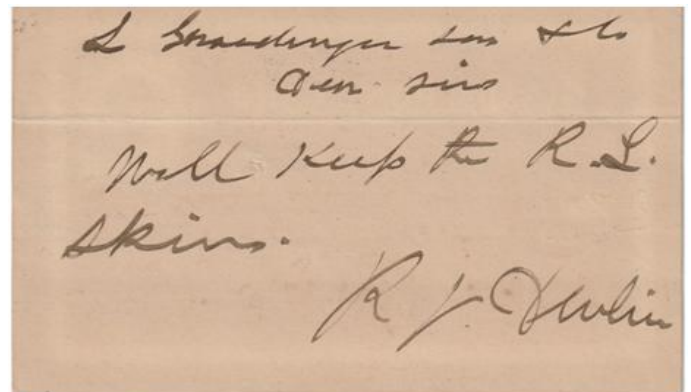 L Gnaedinger Son & Co
Dear Sirs
Will Keep the R.L.
Skins.
R J Devlin